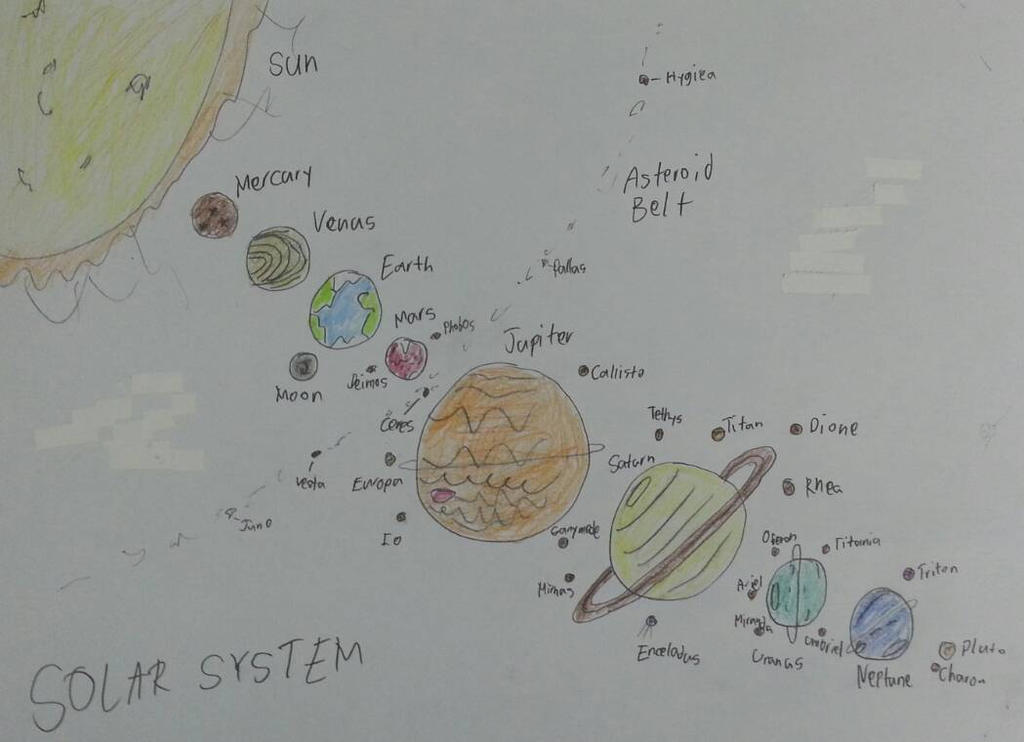 Sun
Hygiea
Mercury
Asteroid
Belt
Venus
Earth
Pallas
Mars
Phobos
Jupiter
Moon
Deimos
Callisto
Ceres
Tethys
Titan
Dione
Saturn
Vesta
Europa
Rhea
Juno
Io
Ganymede
Oberon
Titania
Mimas
Ariel
Triton
Miranda
Umbriel
Enceladus
Uranus
Neptune
Pluto
Charon
SOLAR SYSTEM